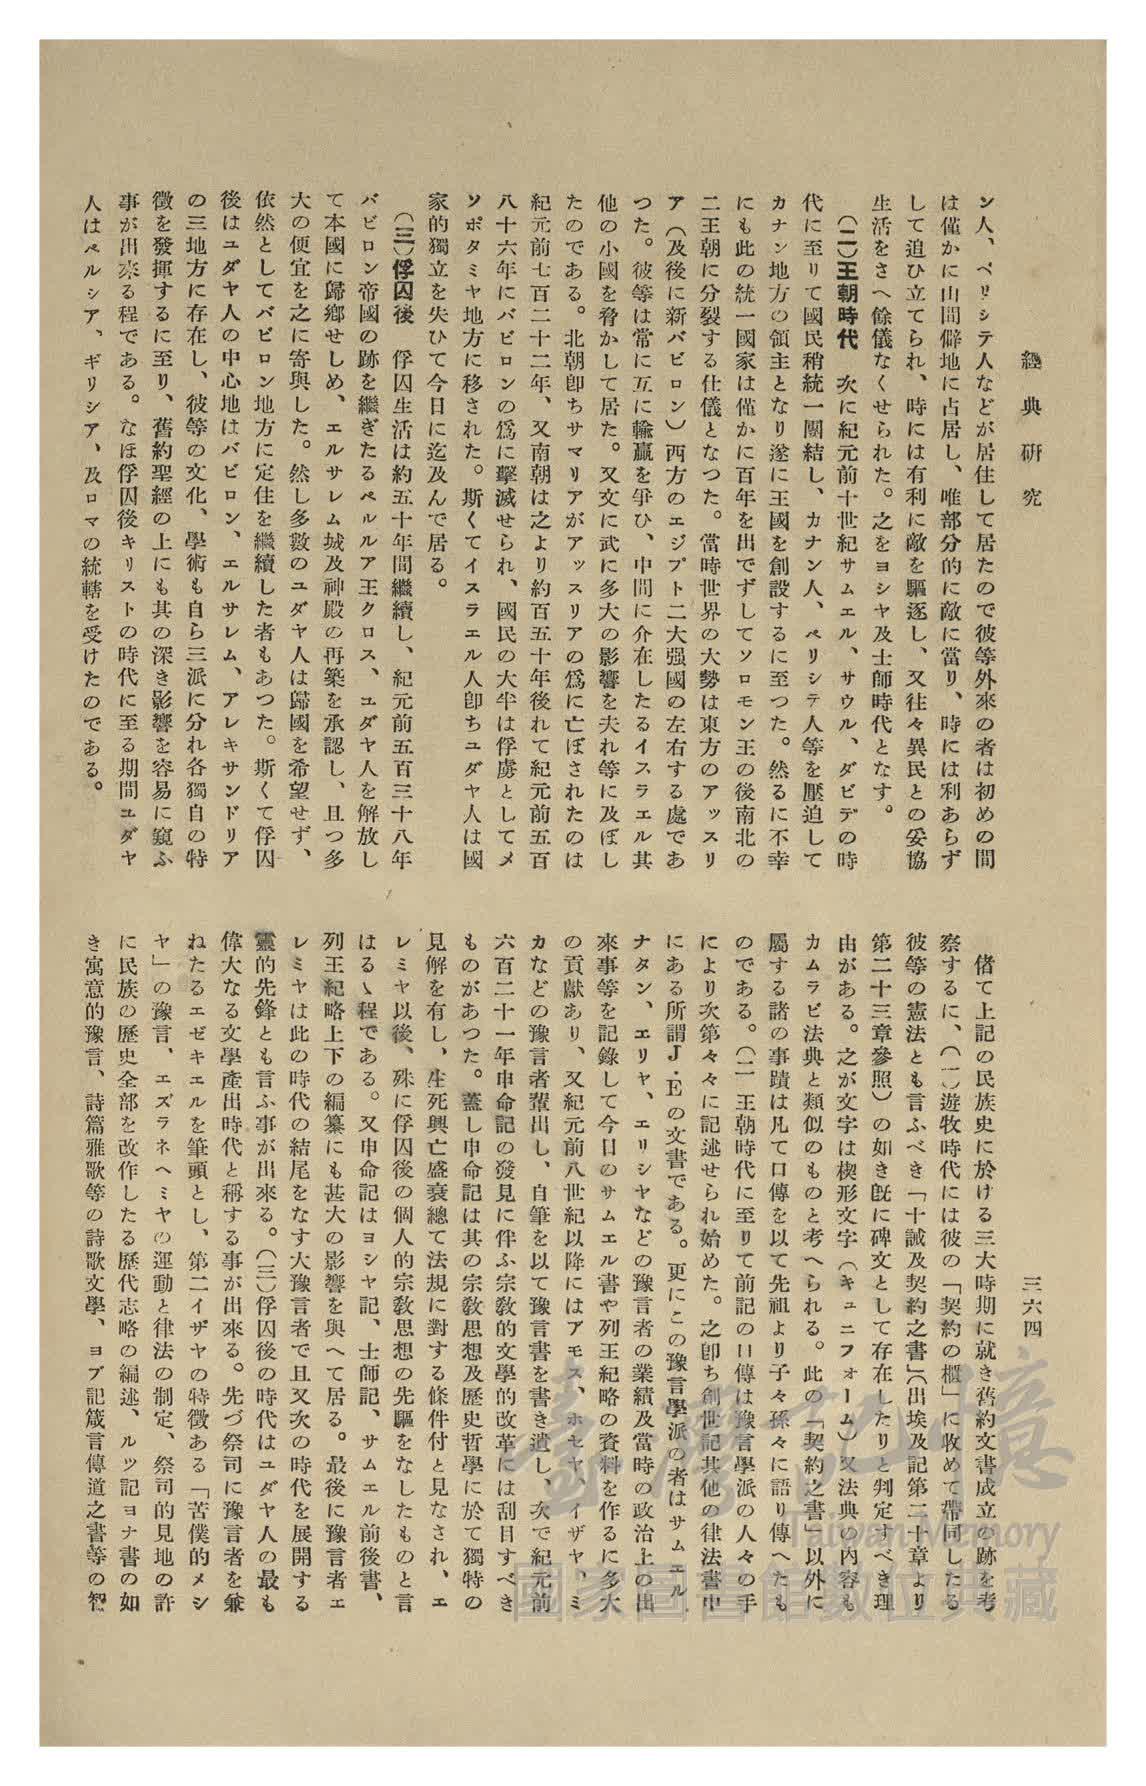 經典研究
三六四
ン人、ペリシテ人などが居住して居たので彼等外來の者は初めの間
は僅かに山間僻地に占居し、唯部分的に敵に當り、時には利あらず
して追ひ立てられ、時には有利に敵を驅逐し、又往々異民との妥協
生活をさへ餘儀なくせられた。之をヨシヤ及士師時代となす。
(二)王朝時代 次に紀元前十世紀サムエル、サウル、ダビデの時
代に至りて國民稍統一團結し、カナン人、ペリシテ人等を壓迫して
カナン地方の領主となり遂に王國を創設するに至つた。然るに不幸
にも此の統一國家は僅かに百年を出でずしてソロモン王の後南北の
二王朝に分裂する仕儀となつた。當時世界の大勢は東方のアッスリ
ア(及後に新バビロン)西方のエジプト二大强國の左右する處であ
つた。彼等は常に互に輸贏を爭ひ、中間に介在したるイスラエル其
他の小國を脅かして居た。又文に武に多大の影響を夫れ等に及ぼし
たのである。北朝卽ちサマリアがアッスリアの爲に亡ぼされたのは
紀元前七百二十二年、又南朝は之より約百五十年後れて紀元前五百
八十六年にバビロンの爲に擊滅せられ、國民の大半は俘虜としてメ
ソポタミヤ地方に移された。斯くてイスラエル人卽ちユダヤ人は國
家的獨立を失ひて今日に迄及んで居る。
(三)俘囚後 俘囚生活は約五十年間繼續し、紀元前五百三十八年
バビロン帝國の跡を繼ぎたるペルルア王クロス、ユダヤ人を解放し
て本國に歸鄉せしめ、エルサレム城及神殿の再築を承認し、且つ多
大の便宜を之に寄與した。然し多數のユダヤ人は歸國を希望せず、
依然としてバビロン地方に定住を繼續した者もあつた。斯くて俘囚
後はユダヤ人の中心地はバビロン、エルサレム、アレキサンドリア
の三地方に存在し、彼等の文化、學術も自ら三派に分れ各獨自の特
徵を發揮するに至り、舊約聖經の上にも其の深き影響を容易に窺ふ
事が出來る程である。なほ俘囚後キリストの時代に至る期間ユダヤ
人はペルシア、ギリシア、及ロマの統轄を受けたのである。
偖て上記の民族史に於ける三大時期に就き舊約文書成立の跡を考
察するに、(一)遊牧時代には彼の「契約の櫃」に收めて帶同したる
彼等の憲法とも言ふべき「十誡及契約之書」(出埃及記第二十章より
第二十三章參照)の如き旣に碑文として存在したりと判定すべき理
由がある。之が文字は楔形文字(キュニフォーム)又法典の內容も
カムラビ法典と類似のものと考へられる。此の「契約之書」以外に
屬する諸の事蹟は凡て口傳を以て先祖より子々孫々に語り傳へたも
のである。(二)王朝時代に至りて前記の口傳は豫言學派の人々の手
により次第々々に記述せられ始めた。之卽ち創世記其他の律法書中
にある所謂J・Eの文書である。更にこの豫言學派の者はサムエル、
ナタン、エリヤ、エリシヤなどの豫言者の業績及當時の政治上の出
來事等を記錄して今日のサムエル書や列王紀略の資料を作るに多大
の貢獻あり、又紀元前八世紀以降にはアモス、ホセヤ、イザヤ、ミ
カなどの豫言者輩出し、自筆を以て豫言書を書き遺し、次で紀元前
六百二十一年申命記の發見に伴ふ宗敎的文學的改革には刮目すべき
ものがあつた。蓋し申命記は其の宗敎思想及歷史哲學に於て獨特の
見解を有し、生死興亡盛衰總て法規に對する條件付と見なされ、エ
レミヤ以後、殊に俘囚後の個人的宗敎思想の先驅をなしたものと言
はるゝ程である。又申命記はヨシヤ記、士師記、サムエル前後書、
列王紀略上下の編纂にも甚大の影響を與へて居る。最後に豫言者エ
レミヤは此の時代の結尾をなす大豫言者で且又次の時代を展開する
靈的先鋒とも言ふ事が出來る。(三)俘囚後の時代はユダヤ人の最も
偉大なる文學產出時代と稱する事が出來る。先づ祭司に豫言者を兼
ねたるエゼキエルを筆頭とし、第二イザヤの特徵ある「苦僕的メシ
ヤ」の豫言、エズラネヘミヤの運動と律法の制定、祭司的見地の許
に民族の歷史全部を改作したる歷代志略の編述、ルツ記ヨナ書の如
き寓意的豫言、詩篇雅歌等の詩歌文學、ヨブ記箴言傳道之書等の智
臺灣記憶
Taiwan Memory
國家圖書館數位典藏